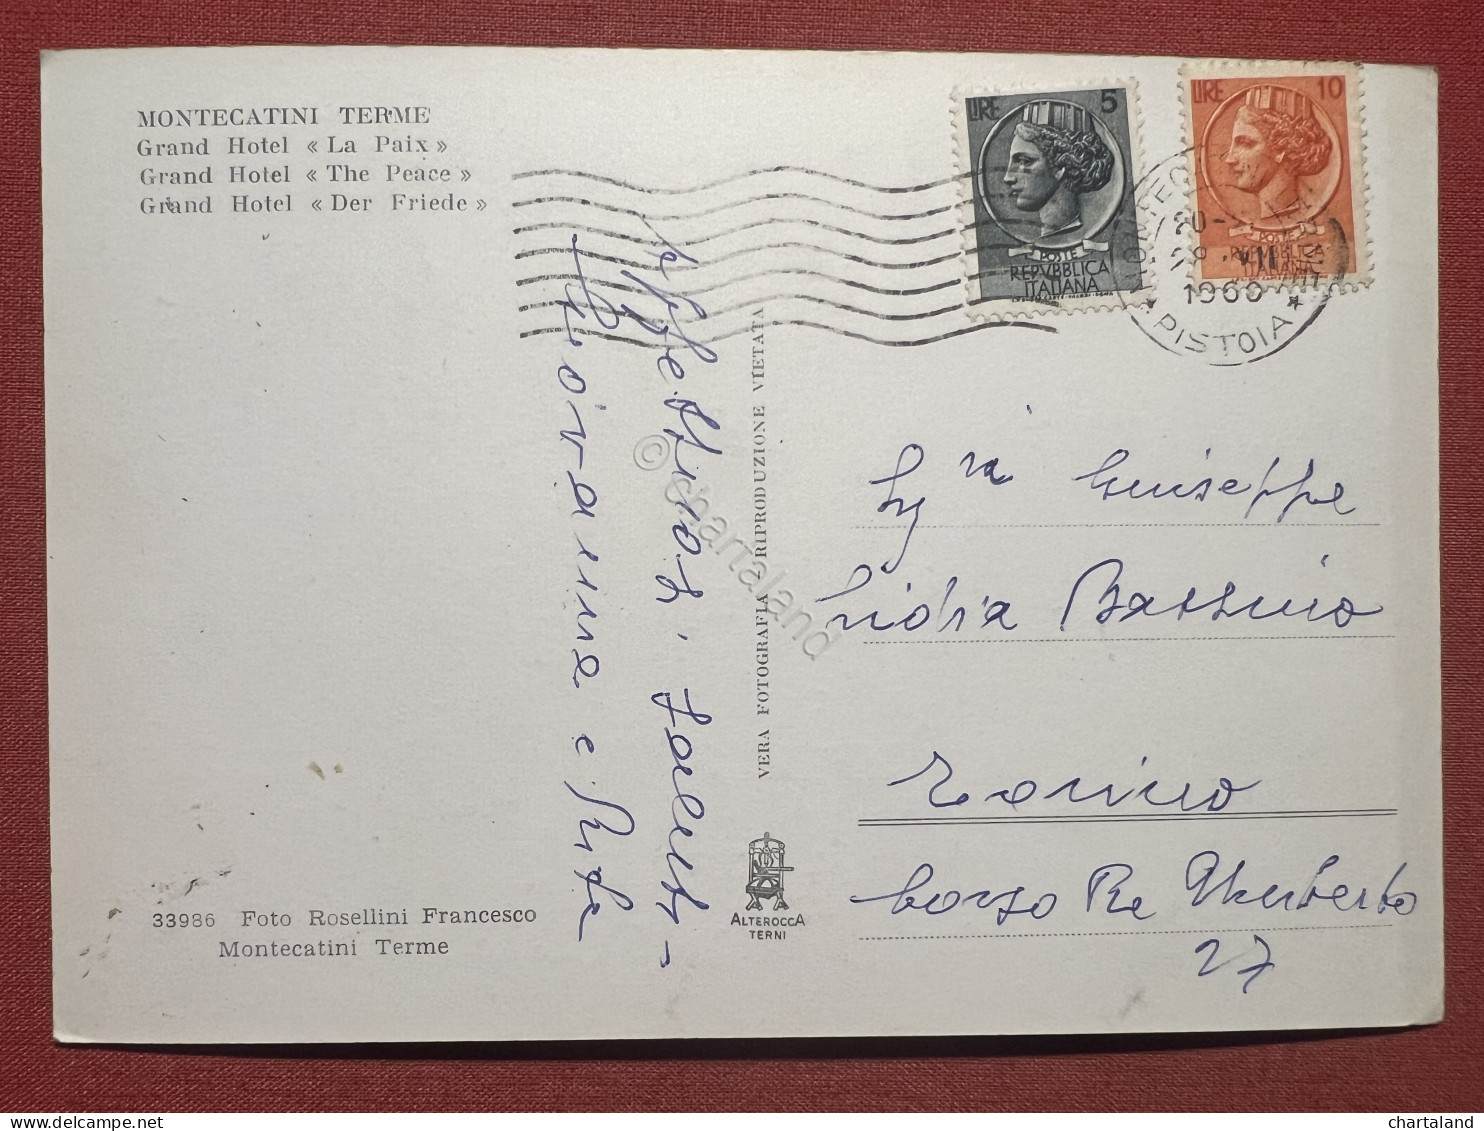 MONTECATINI TERME
Grand Hotel « La Paix »
Grand Hotel « The Peace »
Grand Hotel « Der Friede »
LIRE 5
POSTE
REPVBBLICA
ITALIANA
LIRE 10
POSTE
REPVBBLICA
ITALIANA
1960
PISTOIA
affettuosi saluti
Giovanna e Rita
VERA FOTOGRAFIA - RIPRODUZIONE VIETATA
© chartaland
Giuseppe
Lidia Bassino
Torino
Corso Re Umberto
27
33986 Foto Rosellini Francesco
Montecatini Terme
ALTEROCCA
TERNI
chartaland